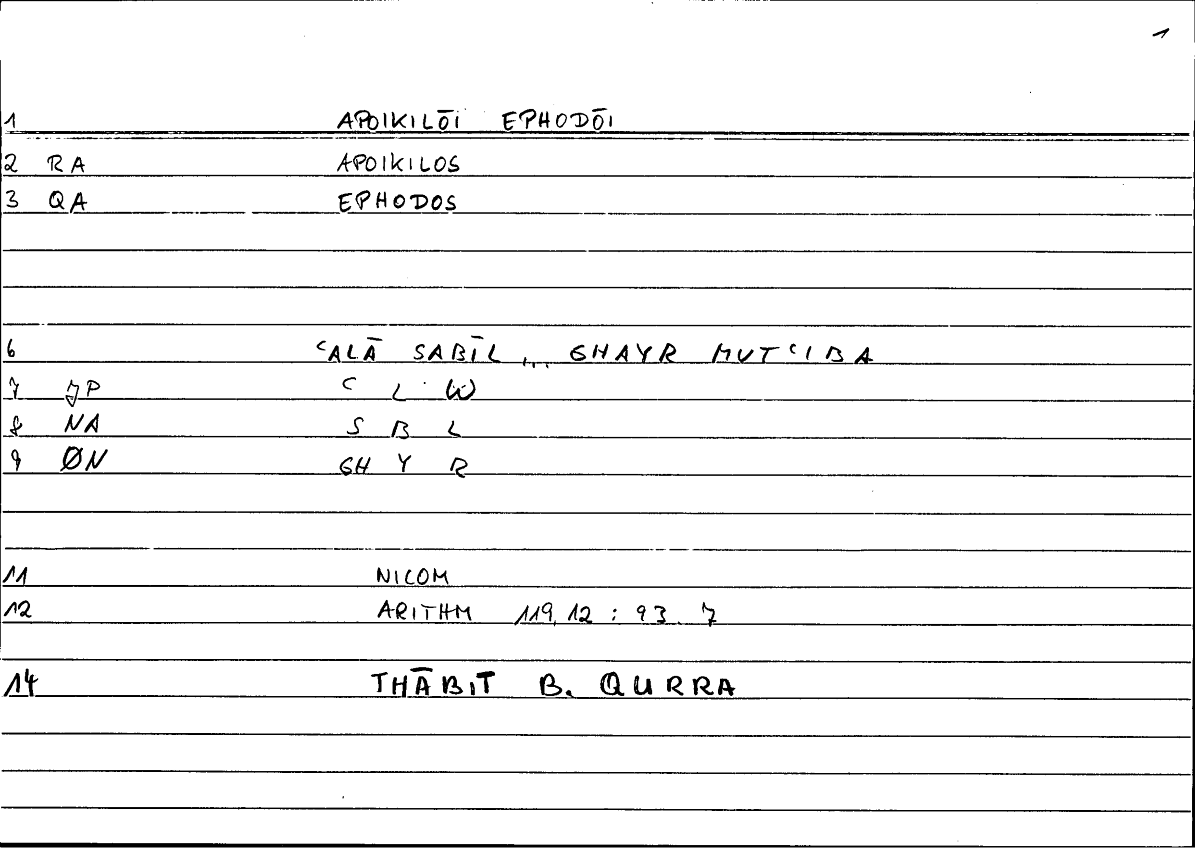 1
1 APOIKILŌI EPHODŌI
2 RA APOIKILOS
3 QA EPHODOS
6 ʿALĀ SABĪL ... GHAYR MUTʿIBA
7 JP ʿ L W
8 NA S B L
9 ØN GH Y R
11 NICOM
12 ARITHM 119,12 : 93.7
14 THĀBIT B. QURRA